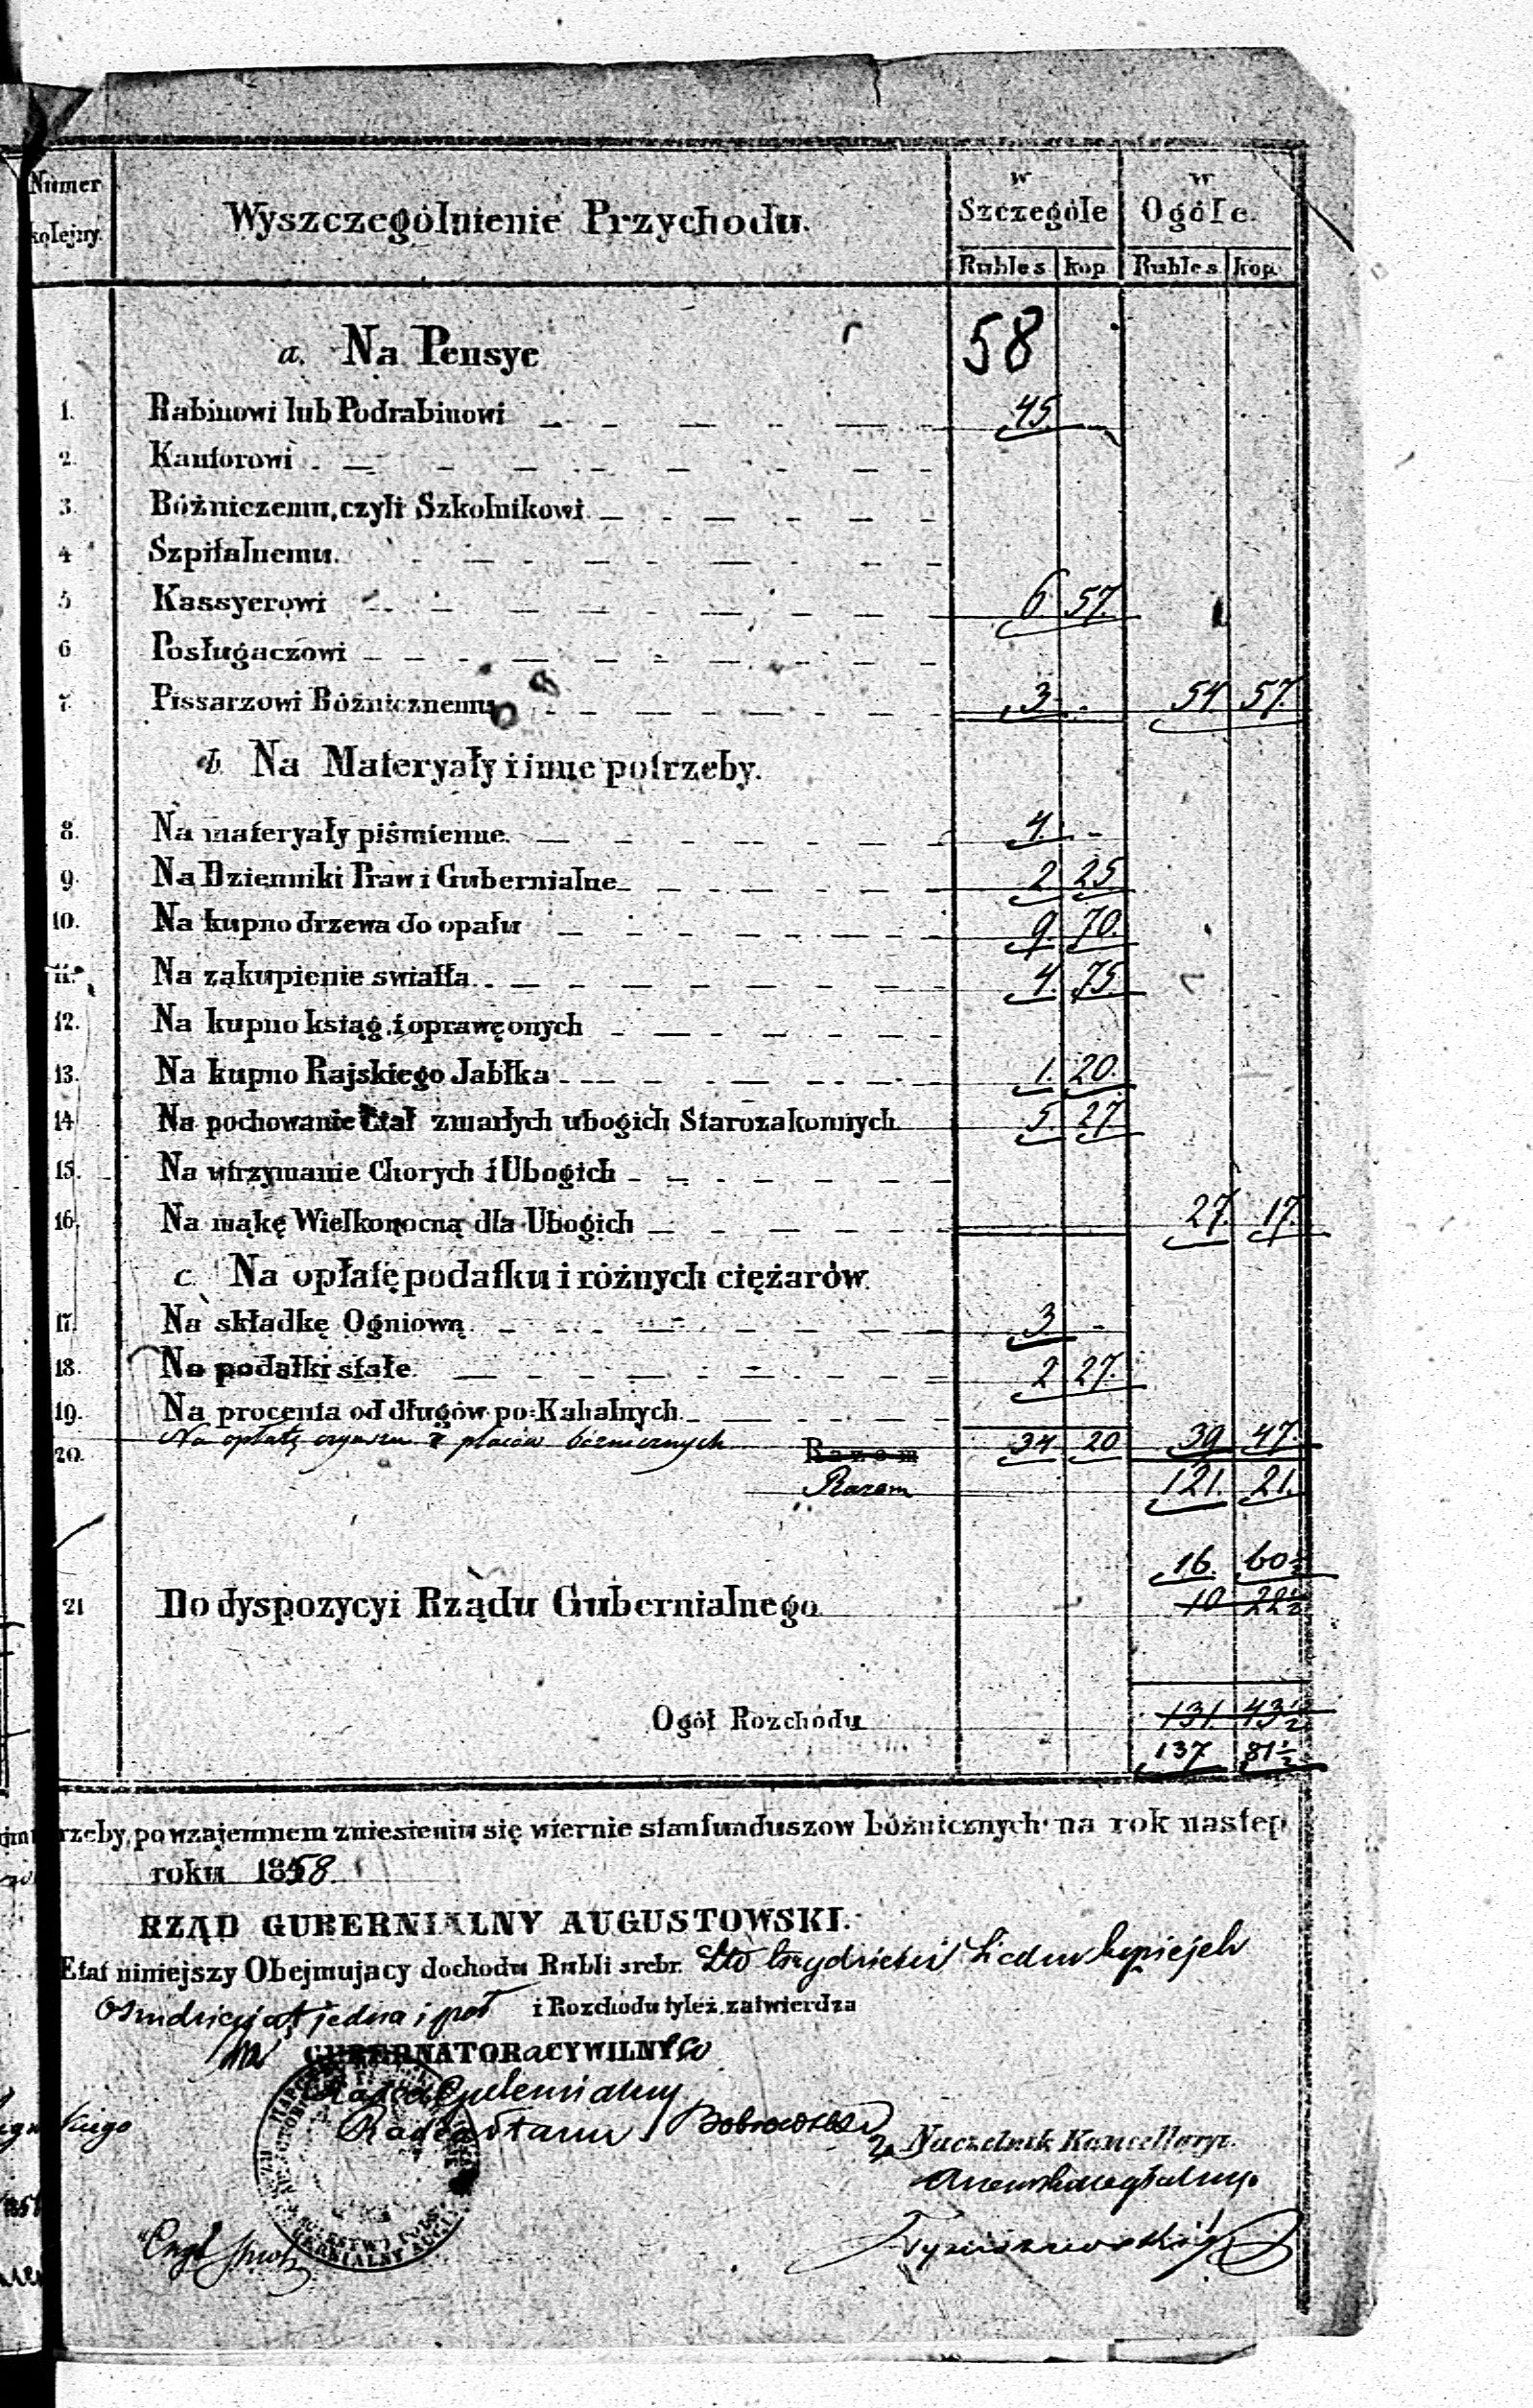 Numer kolejny.
Wyszczególnienie Przychodu.
w Szczególe
w Ogóle.
Rubles kop Rubles kop.
a. Na Pensye 58
1. Rabinowi lub Podrabinowi 45. -
2. Kantorowi
3. Bóżniczemu, czyli Szkolnikowi
4 Szpitalnemu.
5 Kassyerowi 6 57.
6 Posługaczowi
7. Pissarzowi Bóżnicznemu 3 - 54 57.
b. Na Materyały i inne potrzeby.
8. Na materyały piśmienne. 4. -
9. Na Dzienniki Praw i Gubernialne 2 25
10. Na kupno drzewa do opału 9. 70.
11. Na zakupienie swiatła 4. 75.
12. Na kupno ksiąg i oprawę onych
13. Na kupno Rajskiego Jabłka 1. 20.
14 Na pochowanie Ciał zmarłych ubogich Starozakonnych 5 27.
15. Na utrzymanie Chorych i Ubogich
16. Na mąkę Wielkonocną dla Ubogich 27. 17.
c. Na opłatę podatku i różnych ciężarów.
17. Na składkę Ogniową 3 -
18. Na podatki stałe. 2 27.
19. Na procenta od długów po-Kahalnych.
20. Na opłatę czynszu z placów bóżnicznych Razem 34 20 39 47.
Razem 121. 21.
16. 60½
21 Do dyspozycyi Rządu Gubernialnego 10 22½
Ogół Rozchodu 131. 43½
137 81½
rzeby, po wzajemnem zniesieniu się wiernie stan funduszow bóżnicznych na rok następ
roku 1858.
RZĄD GUBERNIALNY AUGUSTOWSKI.
Etat niniejszy Obejmujacy dochodu Rubli srebr. Sto trzydzieści siedm kopiejek
Osmdziesiąt jedna i pół i Rozchodu tyleż. zatwierdza
GUBERNATORA CYWILNEGO
Radca Gubernialny
Radca Stanu Bobrowski
Naczelnik Kancellaryi.